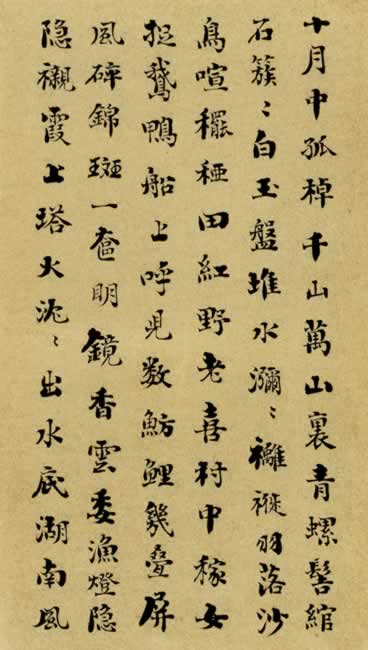 十月中孤棹千山萬山裏青螺髻綰
石簇〻白玉盤堆水瀰〻襹褷羽落沙
鳥喧穲稏田紅野老喜村中稼女
捉鵝鴨船上呼児数魴鯉幾疊屏
風碎錦斑一奩明鏡香雲委漁燈隐
隐襯霞上塔火沈〻出水底湖南風